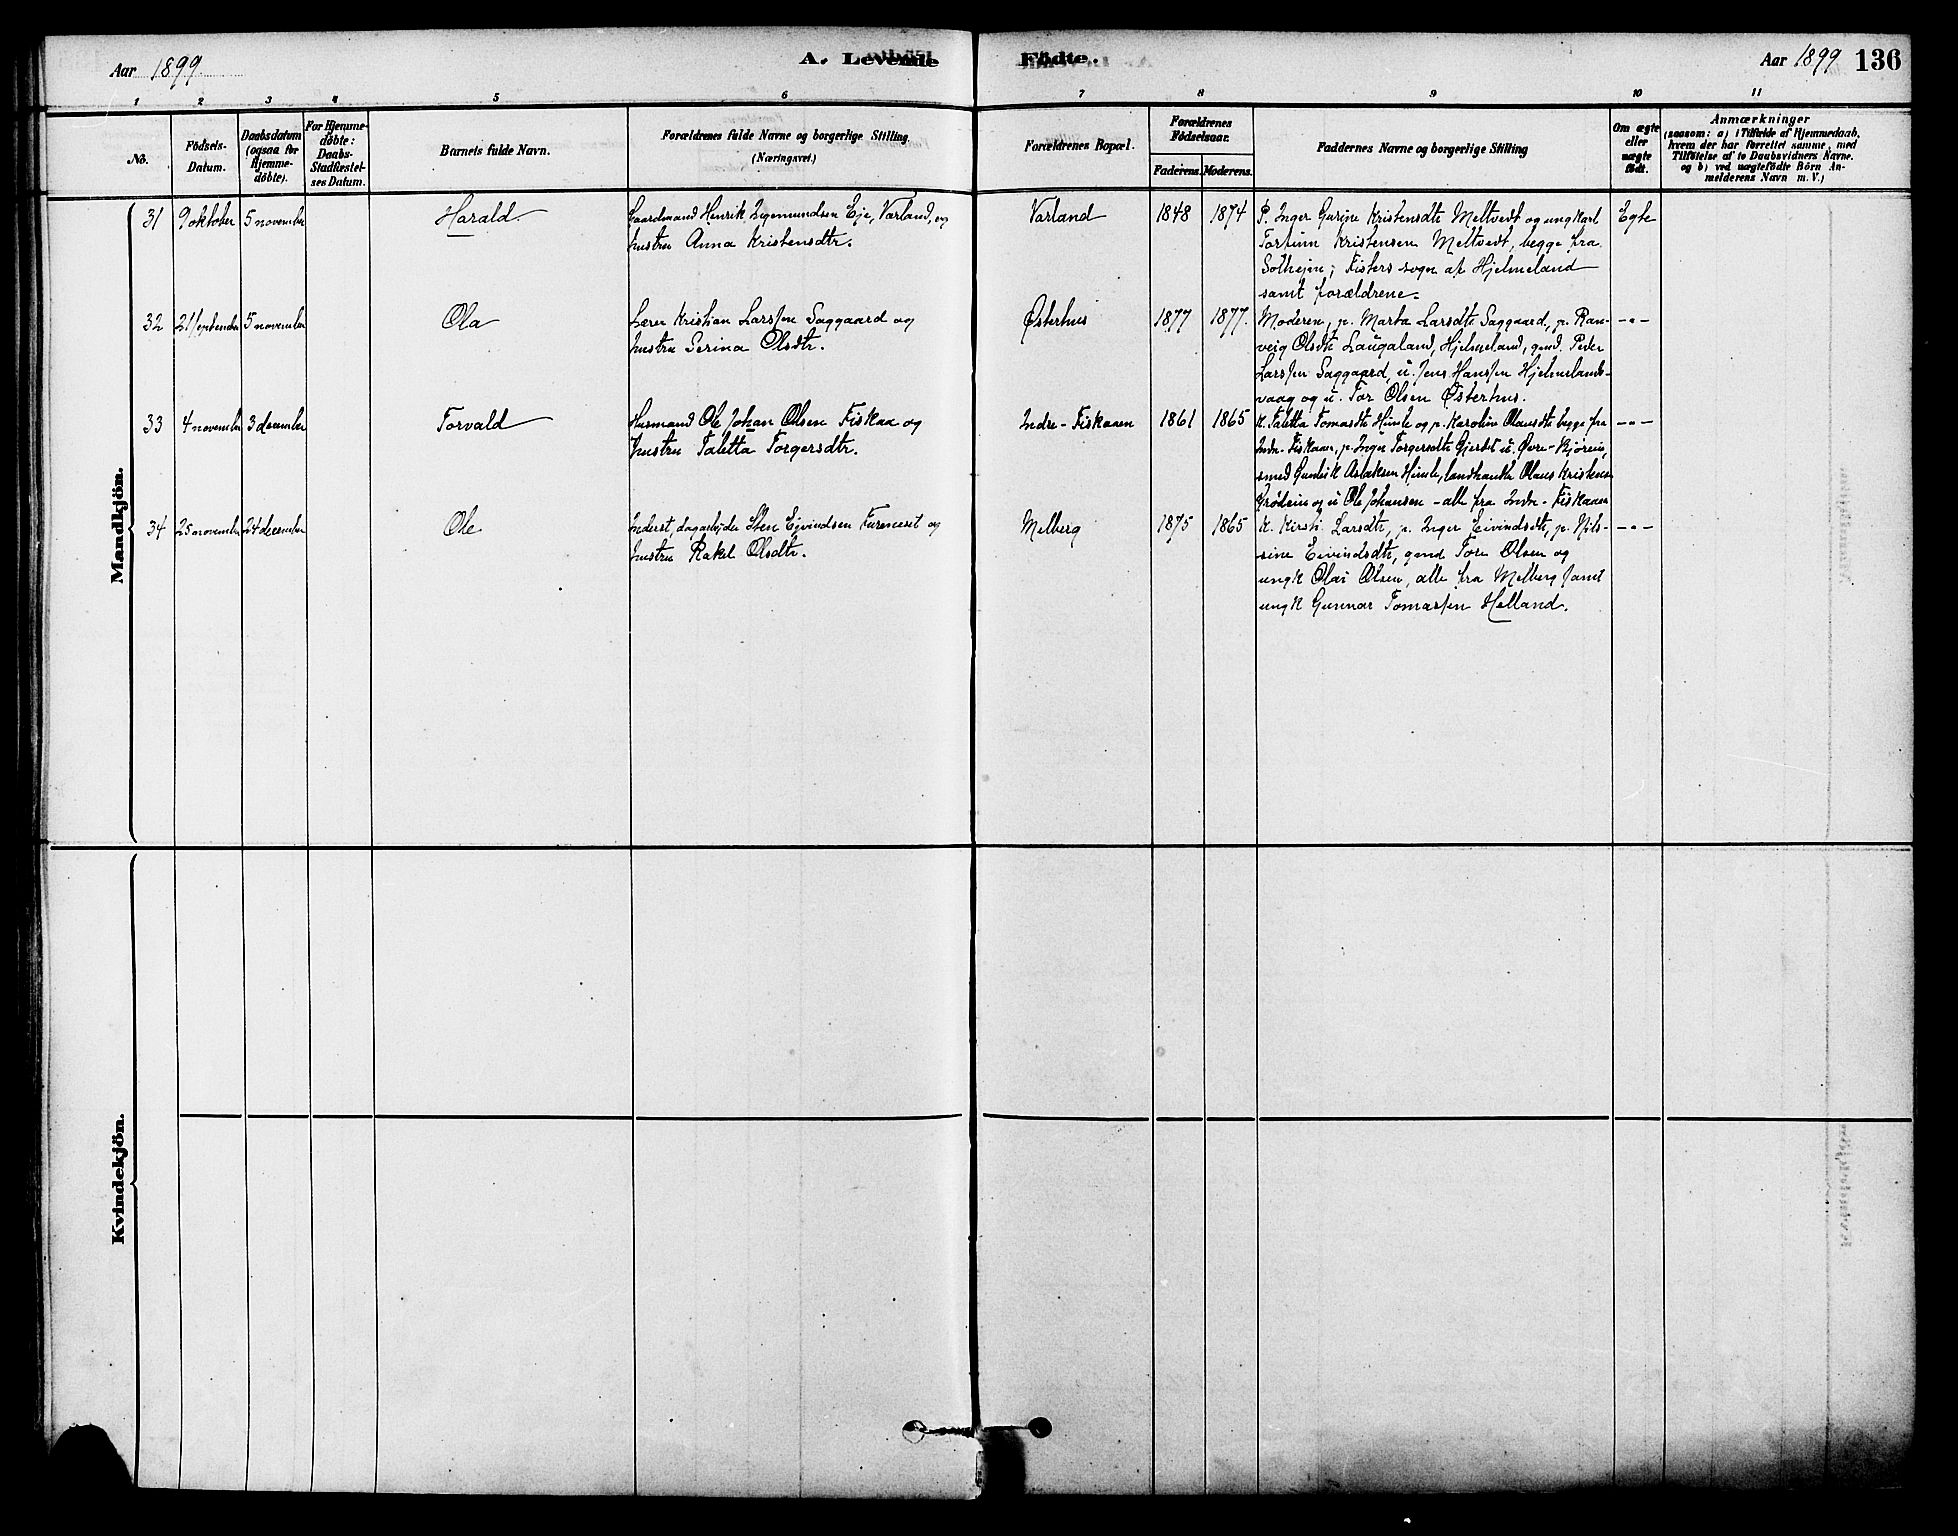 Aar 1899
A. Levende Fødte.
Aar 1899 136
1 2 3 4 5 6 7 8 9 10 11
No.
Födsels-Datum.
Daabsdatum (ogsaa for Hjemme-døbte).
For Hjemme-døbte: Daabs-Stadfæstel-ses Datum.
Barnets fulde Navn.
Forældrenes fulde Navne og borgerlige Stilling (Næringsvei.)
Forældrenes Bopæl.
Forældrenes Födselsaar.
Faderens. Moderens.
Faddernes Navne og borgerlige Stilling
Om ægte eller uægte født.
Anmærkninger
(saasom: a) i Tilfælde af Hjemmedaab,
hvem der har forrettet samme, med
Tilföielse af to Daabsvidners Navne.
og b) ved uægtefödte Börn An-
melderens Navn m. V.)
Mandkjön.
31 9 oktober 5 november Harald
Gaardmand Henrik Sigemundsen Eje, Varland, og
hustru Anna Kristensdtr.
Varland 1848 1874
P. Inger Gurine Kristensdtr Meltvedt og ungkarl
Torfinn Kristensen Meltvedt, begge fra
Solhejm; Fisters sogn af Hjelmeland
samt forældrene.
Egte
32 21 september 5 november Ola
Lærer Kristian Larssen Saggaard og
hustru Serina Olsdtr.
Østerhus 1877 1877.
Moderen, p. Marta Larsdtr Saggaard, p. Ran-
veig Olsdtr Laugaland, Hjelmeland, gmd. Peder
Larssen Saggaard, u. Jens Hanssen Hjelmelands-
vaag og u. Tor Olsen Østerhus.
-"-
33 4 november 3 december Torvald
Husmand Ole Johan Olsen Fiskaa og
hustru Taletta Torgersdtr.
Indre-Fiskaaen 1861 1865
K. Taletta Tomasdtr Himle og p. Karolin Olausdtr begge fra
Indre-Fiskaaen, p. Inger Torgersdtr Gjerdet u. Øvre-
smed Gunleik Aslaksen Himle, landhandler Olaus Kristensen
og u Ole Johansen - alle fra Indre-Fiskaaen
-"-
34 25 november 24 december Ole
Inderst dagarbejder Sten Ejvindsen Fureneset og
hustru Rakel Olsdtr.
Melberg 1875 1865
K. Kirsti Larsdtr, p. Inger Eivindsdtr, p. Nils-
sine Eivindsdtr, gmd Tore Olsen og
ungk Olai Olsen, alle fra Melberg samt
ungk Gunnar Tomassen Helland.
-"-
Kvindekjön.